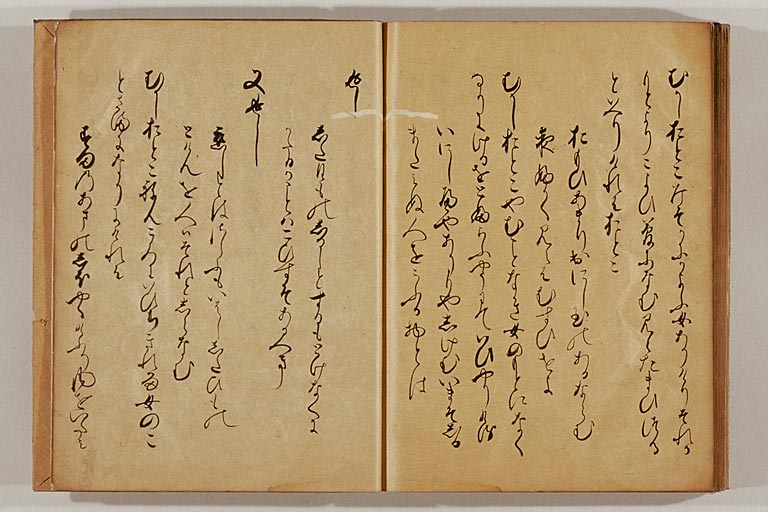 むかしおとこみそかにかよふ女ありけりそれか
もとよりこよひ夢になむ見えたまひつる
といへりけれはおとこ
おもひあまり出にし玉のあるならむ
夜ふかく見えはむすひせよ
むかしおとこやむことなき女のもとになく
なりにけるをとふらふやうにていひやりける
いにしへやありもやしけむいまそしる
またみぬ人をこふる物とは
返し
したひものしるしとするもとけなくに
かたるかことはこひすそあるへき
又返し
恋しとはさらにもいはしゝたひもの
とけんを人はそれとしらなむ
むかしおとこねんころにいひちきれる女のこ
とさまになりにけれは
すまのあまのしほやくけふり風をいたみ